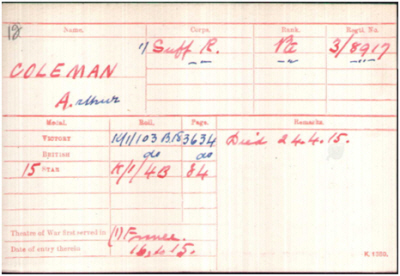 Name. Corps. Rank. Regtl. No.
1) Suff R. Pte 3/8917
COLEMAN
Arthur
Medal. Roll. Page. Remarks.
VICTORY K/1/103 B15 3634 Died 24.4.15.
BRITISH do do
15 STAR K/1/4B 84
Theatre of War first served in (1) France.
Date of entry therein
K. 1380.